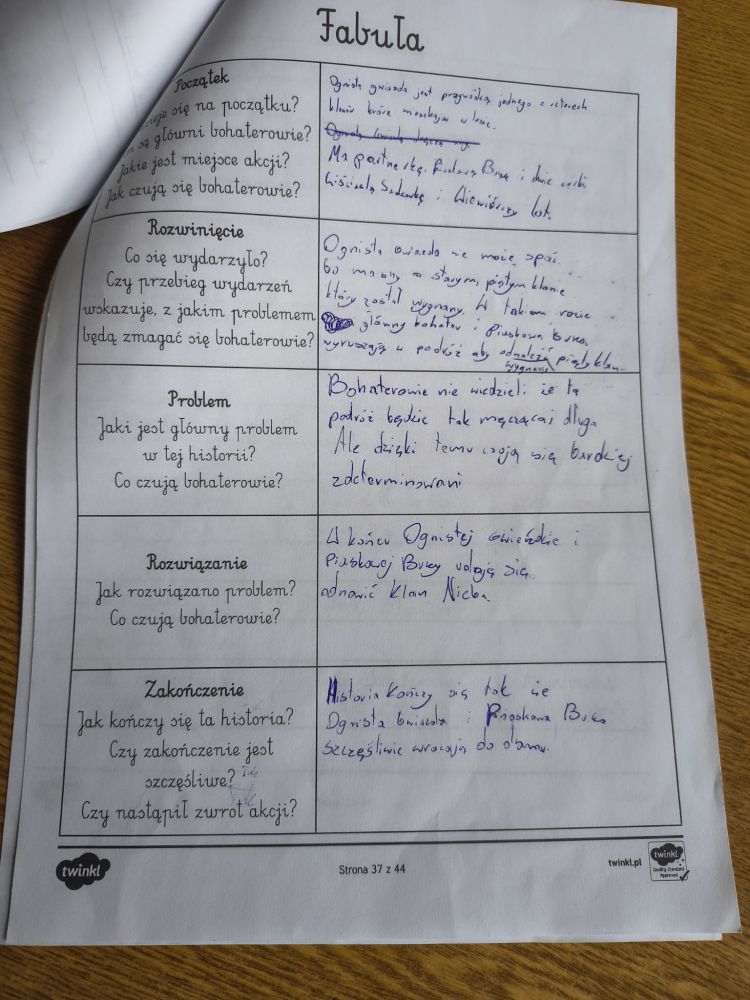 Fabuła
Początek
się na początku?
są główni bohaterowie?
Jakie jest miejsce akcji?
Jak czują się bohaterowie?
Ognista gwiazda jest przywódcą jednego z czterech
klanów które mieszkają w lesie.
Ma partnerkę, Piaskową Burzę i dwie córki
Liściastą Sadzawkę i Wiewiórczy Lot.
Rozwinięcie
Co się wydarzyło?
Czy przebieg wydarzeń
wskazuje, z jakim problemem
będą zmagać się bohaterowie?
Ognista Gwiazda nie może spać
bo ma sny o starym, piątym klanie
który został wygnany. W takiem razie
główny bohater i Piaskowa Burza
wyruszają w podróż aby odnaleźć piąty klan.
wygnany
Problem
Jaki jest główny problem
w tej historii?
Co czują bohaterowie?
Bohaterowie nie wiedzieli że ta
podróż będzie tak męcząca i długa
Ale dzięki temu czują się bardziej
zdeterminowani
Rozwiązanie
Jak rozwiązano problem?
Co czują bohaterowie?
W końcu Ognistej Gwieździe i
Piaskowej Burzy udaje się
odnowić Klan Nieba.
Zakończenie
Jak kończy się ta historia?
Czy zakończenie jest
szczęśliwe?
Czy nastąpił zwrot akcji?
Historia kończy się tak że
Ognista Gwiazda i Piaskowa Burza
szczęśliwie wracają do domu.
twinkl
Strona 37 z 44
twinkl.pl
twinkl
Quality Standard
Approved